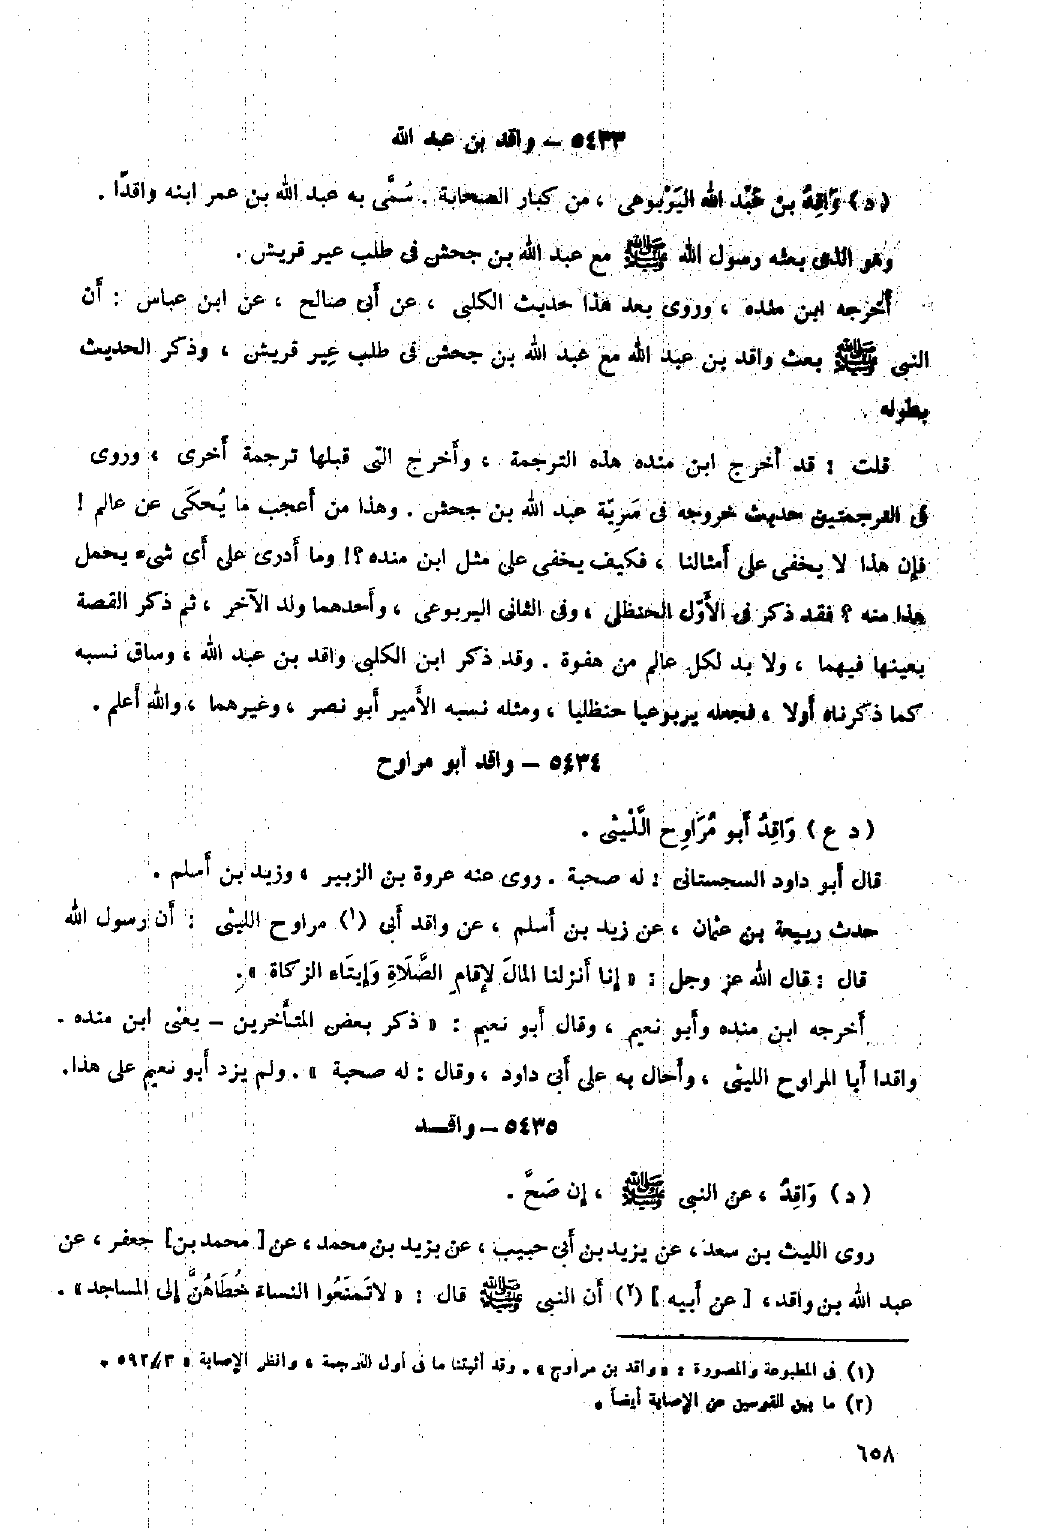 ٥٤٣٣ – واقد بن عبد الله
(د) وَاقِدُ بن عَبْد الله اليَرْبوعى ، من كبار الصحابة . سُمَّى به عبد الله بن عمر ابنه واقدًا .
وهو الذى بعثه رسول الله ﷺ مع عبد الله بن جحش فى طلب عير قريش .
أخرجه ابن منده ، وروى بعد هذا حديث الكلبى ، عن أبى صالح ، عن ابن عباس : أن
النبى ﷺ بعث واقد بن عبد الله مع عبد الله بن جحش فى طلب عِير قريش ، وذكر الحديث
بطوله .
قلت : قد أخرج ابن منده هذه الترجمة ، وأخرج التى قبلها ترجمة أخرى ، وروى
فى الترجمتين حديث خروجه فى سَرِيّة عبد الله بن جحش . وهذا من أعجب ما يُحكَى عن عالم !
فإن هذا لا يخفى على أمثالنا ، فكيف يخفى على مثل ابن منده ؟! وما أدرى على أى شىء يحمل
هذا منه ؟ فقد ذكر فى الأَوّل الحنظلى ، وفى الثانى اليربوعى ، وأحدهما ولد الآخر ، ثم ذكر القصة
بعينها فيهما ، ولا بد لكل عالم من هفوة . وقد ذكر ابن الكلبى واقد بن عبد الله ، وساق نسبه
كما ذكرناه أولا ، فجعله يربوعيا حنظليا ، ومثله نسبه الأمير أبو نصر ، وغيرهما ، والله أعلم .
٥٤٣٤ – واقد أبو مراوح
(د ع) وَاقِدُ أبو مُرَاوِح اللَّيْثى .
قال أبو داود السجستانى : له صحبة . روى عنه عروة بن الزبير ، وزيد بن أسلم .
حدث ربيعة بن عثمان ، عن زيد بن أسلم ، عن واقد أبى (١) مراوح الليثى : أن رسول الله
قال : قال الله عز وجل : « إنا أنزلنا المالَ لإقامِ الصَّلَاةِ وَإيتَاء الزكاة » .
أخرجه ابن منده وأبو نعيم ، وقال أبو نعيم : « ذكر بعض المتأخرين – يعنى ابن منده .
واقدا أبا المراوح الليثى ، وأحال به على أبى داود ، وقال : له صحبة » . ولم يزد أبو نعيم على هذا .
٥٤٣٥ – واقــد
(د) وَاقِدُ ، عن النبى ﷺ ، إن صَحَّ .
روى الليث بن سعد ، عن يزيد بن أبى حبيب ، عن يزيد بن محمد ، عن [ محمد بن ] جعفر ، عن
عبد الله بن واقد ، [ عن أبيه ] (٢) أن النبى ﷺ قال : « لا تَمنَعُوا النساء خُطَاهُنَّ إلى المساجد » .
(١) فى المطبوعة والمصورة : « واقد بن مراوح » . وقد أثبتنا ما فى أول الترجمة ، وانظر الإصابة « ٣ / ٥٩٢ .
(٢) ما بين القوسين عن الإصابة أيضاً .
٦٥٨